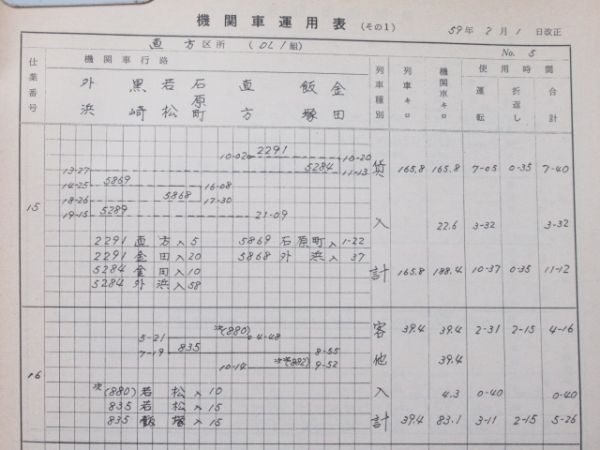 機関車運用表 (その1)
59年 2月 1日改正
直方区所 (DL1組)
No. 5
仕業番号
機関車行路
外浜 黒崎 若松 石原町 直方 飯塚 金田
列車種別
列車キロ
機関車キロ
使用時間
運転 折返し 合計
15
10-02 2291 10-20
13-27 5284 11-13
14-25 5869 16-08
18-26 5868 17-30
19-15 5289 21-09
貨 165.8 165.8 7-05 0-35 7-40
入 22.6 3-32 3-32
計 165.8 188.4 10-37 0-35 11-12
2291 直方入5 5869 石原町入1-22
2291 金田入20 5868 外浜入37
5284 金田入10
5284 外浜入58
16
(880)
5-21 4-48
7-19 835 8-55
10-14 (882) 9-52
客 39.4 39.4 2-31 2-15 4-16
他 39.4
入 4.3 0-40 0-40
計 39.4 83.1 3-11 2-15 5-26
(880) 若松入10
835 若松入15
835 飯塚入15